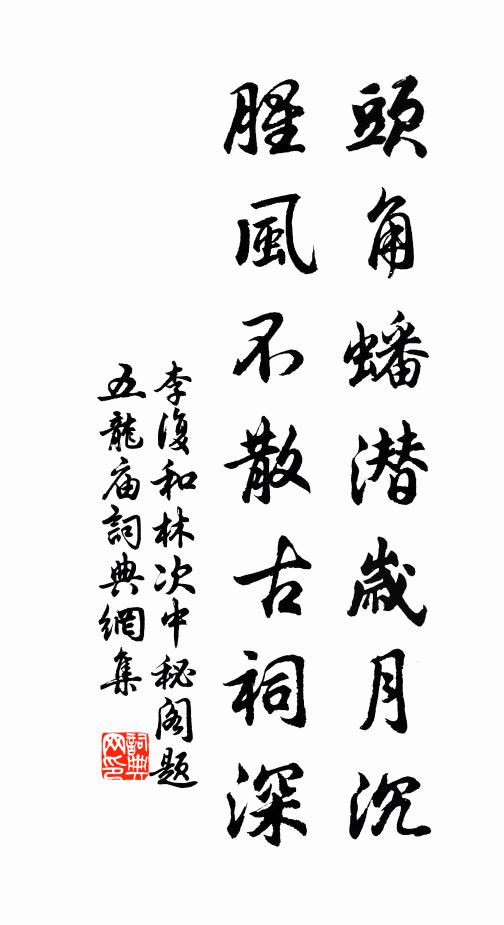 頭角蟠潜歲月沉
腥風不散古祠深
李復和林次中秘阁題
五龍庙詞典網集
詞典网印